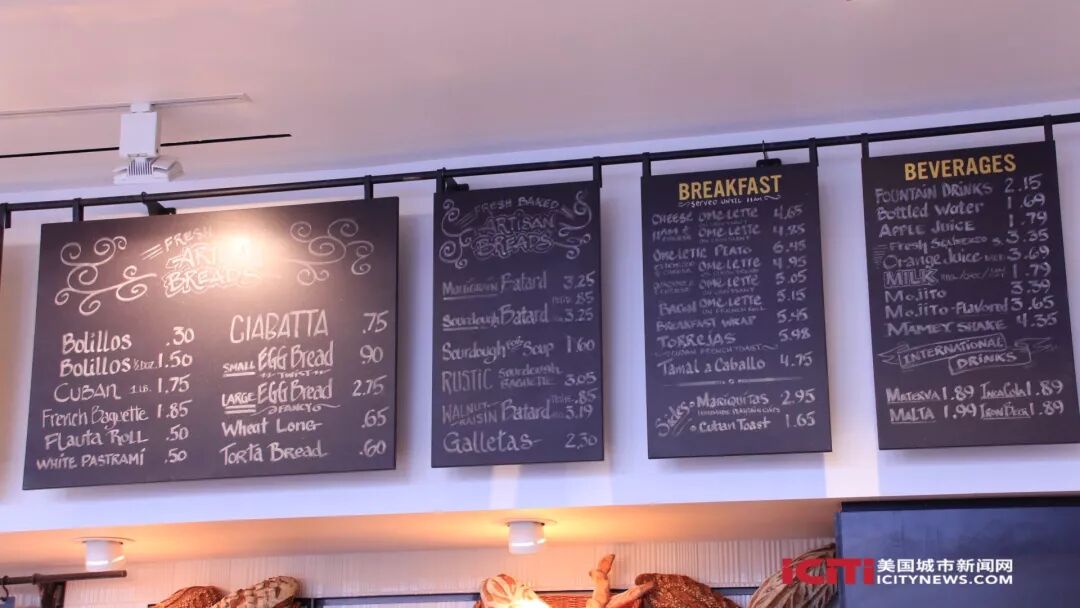 FRESH
ARTISAN
BREADS
BOLILLOS .30
BOLILLOS ½ DOZ. 1.50
CUBAN 1 LB. 1.75
FRENCH BAGUETTE 1.85
FLAUTA ROLL .50
WHITE PASTRAMI .50
CIABATTA .75
SMALL EGG BREAD .90
TWIST
LARGE EGG BREAD 2.75
FANCY
WHEAT LONG- .65
TORTA BREAD .60
FRESH BAKED
ARTISAN
BREADS
BATARD 3.25
.85
SOURDOUGH BATARD 3.25
SOURDOUGH FOR SOUP 1.60
RUSTIC SOURDOUGH BAGUETTE 3.05
.85
WALNUT RAISIN BATARD 3.19
GALLETAS- 2.30
BREAKFAST
SERVED UNTIL 11AM
CHEESE OMELETTE 4.65
HAM & OMELETTE 4.85
OMELETTE PLATO 6.45
OMELETTE 4.95
OMELETTE 5.05
BACON OMELETTE 5.15
ON FRENCH ROLL
BREAKFAST WRAP 5.45
TORREJAS 5.98
CUBAN FRENCH TOAST
TAMAL A CABALLO 4.75
SIDES • MARIQUITAS 2.95
HOMEMADE PLANTAIN CHIPS
• CUBAN TOAST 1.65
BEVERAGES
FOUNTAIN DRINKS 2.15
BOTTLED WATER 1.69
APPLE JUICE 1.79
FRESH SQUEEZED 3.35
ORANGE JUICE 3.69
MILK 1.79
MOJITO 3.39
MOJITO-FLAVORED 3.65
MAMEY SHAKE 4.35
INTERNATIONAL
DRINKS
MATERVA 1.89 INCA COLA 1.89
MALTA 1.99 IRON BEER 1.89
ICITI 美国城市新闻网
ICITYNEWS.COM